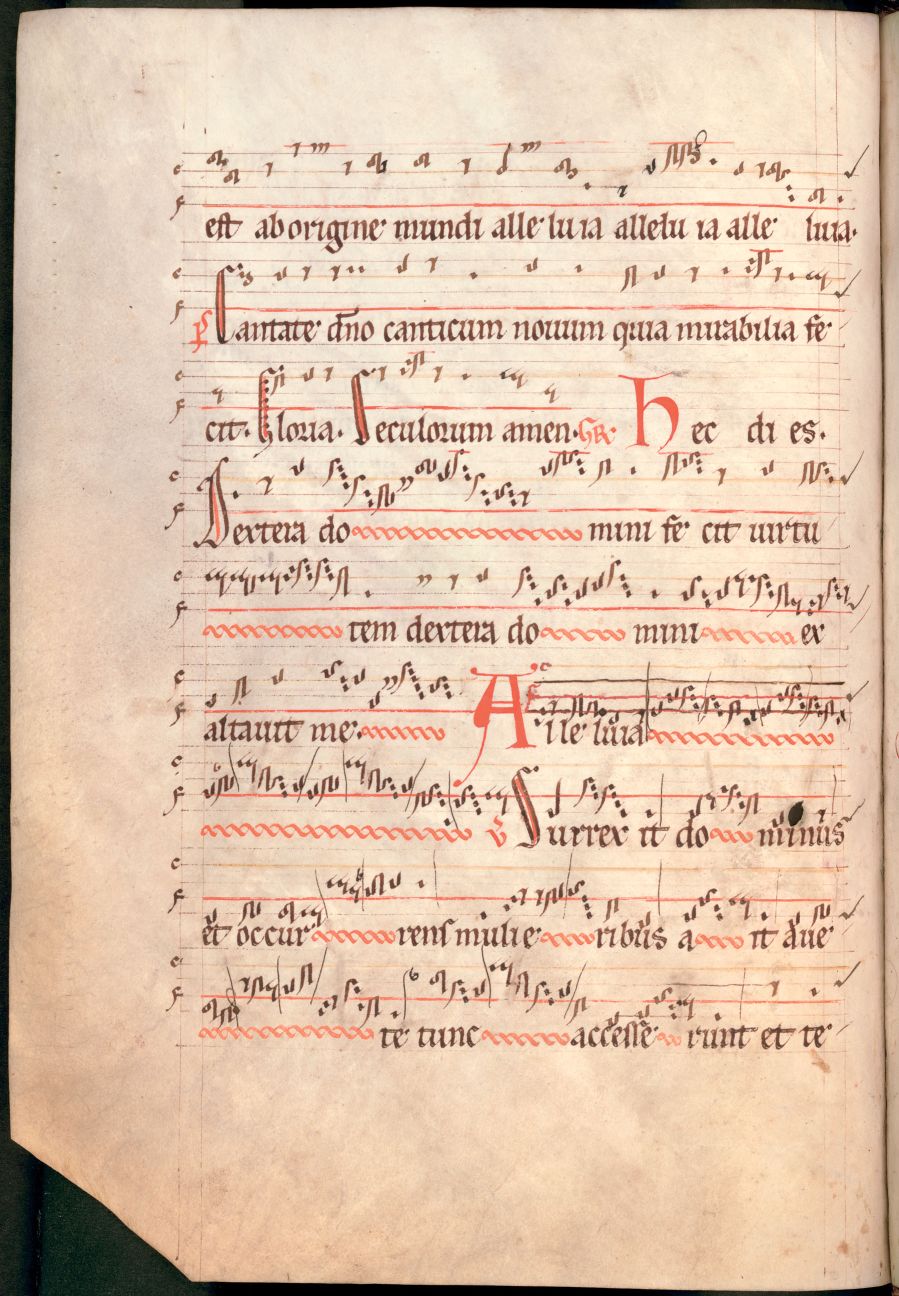 est ab origine mundi alleluia allelu ia alle luia.
ps Cantate dno canticum nouum quia mirabilia fe
cit. Gloria. Seculorum amen. GR. Hec di es.
Dextera do mini fe cit uirtu
tem dextera do mini ex
altauit me. Alle luia
V Surrex it do minus
et occur rens mulie ribus a it aue
te tunc accesse runt et te